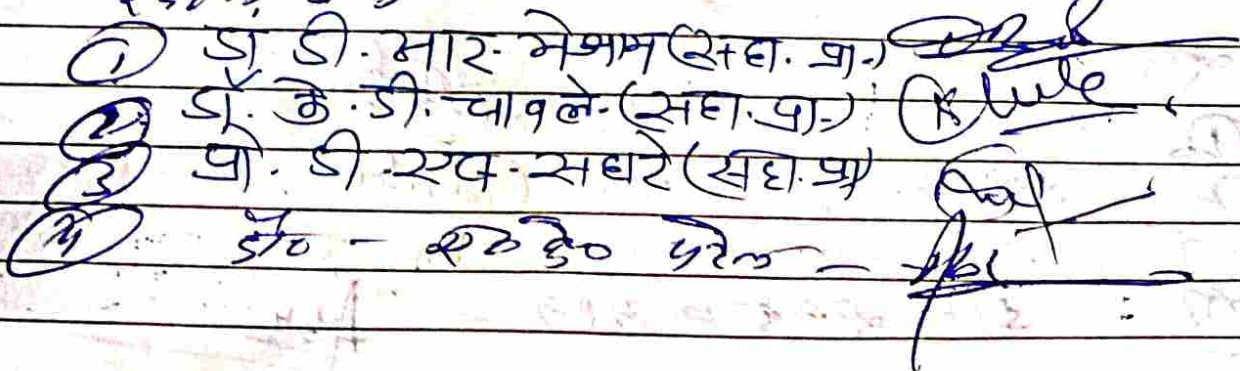 ① डॉ डी. आर. मेश्राम (सहा. प्रा.)
② डॉ. के. डी. चावले (सहा. प्रा.)
③ प्रो. डी. एच. सघरे (सहा. प्रा)
④ डॉ० - एल० के० पटेल -